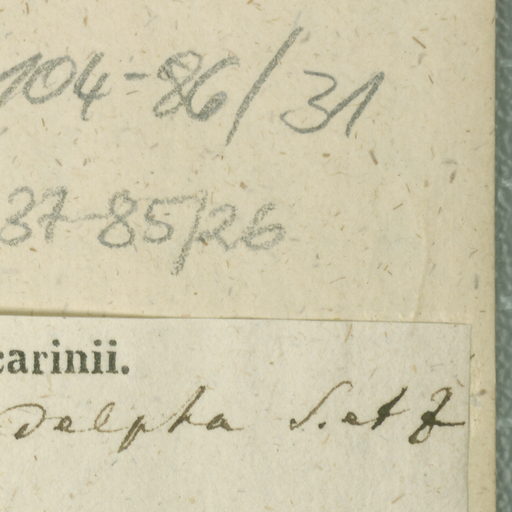 104-86/31
37-85/26
carinii.
delpha S. et Z